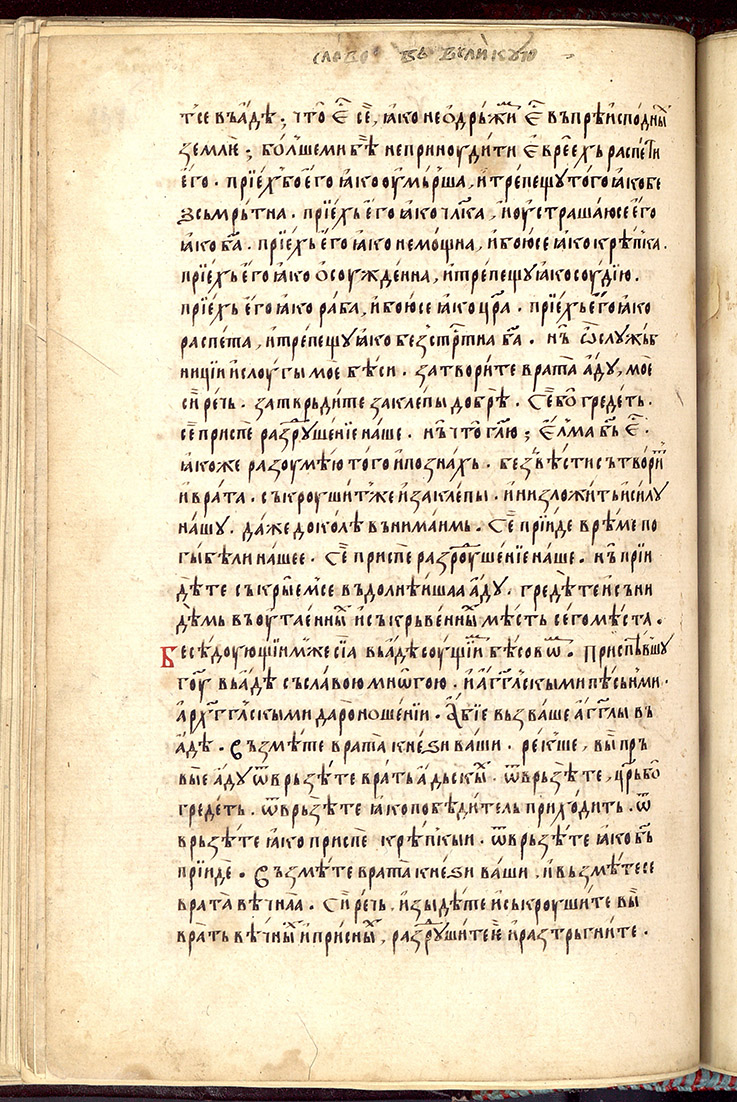 слово въ великую
тсе въ а́дѣ; что̀ є҆̑ се̏, ꙗ҆́ко не ѡ҆дръжи́м є҆̑ въ прѣи́споднꙑх
землѥ; бо́лшеми бѣ̏ непринѹ́дити є҆врее́хь распе́ти
є҆го. прїе́х бо є҆го ꙗ҆́ко ѹ҆мръ́ша, и҆ тре́пещу того ꙗ҆́ко бе
зсьмрь́тна. прїе́хь є҆го ꙗ҆́ко чл҃ка, и҆ ѹ҆страша́юсе є҆го
ꙗ҆́ко ба҃. прїе́хь є҆го ꙗ҆́ко немо́щна, и҆ бою́се ꙗ҆́ко крѣ́пка.
прїе́хь є҆го ꙗ҆́ко ѡ҆сужде́нна, и҆ тре́пещу ꙗ҆́ко сѹдїю.
прїе́хь є҆го ꙗ҆́ко ра́ба, и҆ бою́се ꙗ҆́ко цр҃а. прїе́хь є҆го ꙗ҆́ко
распе́та, и҆ тре́пещу ꙗ҆́ко безстр҃тна ба҃. нь̏ ѽ слу́жьб
ници и҆ слѹ́гы мое̏ бѣ́си. затвори́те врата̀ а҆́ду, мое̏
си̏ рѣчь. затвьрди́те закле́пы добрѣ̏. Се̏ бо̀ греде́ть.
се̏ приспе̏ разрѹше́нїе на́ше. нь̏ что̀ гл҃ю; є҆́лма бь҃ є҆̑.
ꙗ҆́коже разѹмѣ́ю того и҆ позна́хь. безвѣ́сти сътвори́т
и҆ врата̀. съкрѹши́т же и҆ закле́пы. и҆ низложи́ть и҆ си́лу
на́шу. да́же доко́лѣ вънима́имь. Се̏ прїи́де врѣ́ме по
гы́бѣли на́шее. Се̏ приспе̏ разрѹше́нїе на́ше. нь̏ прїи
дѣ́те съкры́емсе въ долнѣ́ишаа а҆́ду. греде́те и҆ съни
дѣ́мь въ ѹ҆тае́нныꙵх и҆ съкрьве́нныꙵх мѣ́сть сего мѣ́ста.
Бесѣ́дѹющїим же сїа̀ вь а҆́дѣ сѹ́щїим бѣ́совѡм. Приспѣ́вшу
го҃ѹ вь а҆́дѣ съ сла́вою мно́гою. и҆ а҆г҃гл҃скыми пѣ́сьнми.
а҆рха҃гг҃лскыми дароноше́нїи. А҆́бїе възва́ше а҆́гг҃лы въ
а҆́дѣ. Възмѣ́те врата̀ кне́ѕи ва́ши. ре́кше, вы̏ пръ
вые а҆́ду ѿврьзѣ́те вра́ть а҆́дьскых. ѿврьзѣ́те, цр҃ь бо̀
греде́ть. ѿврьзѣ́те ꙗ҆́ко побѣди́тель прихо́дить. ѿ
врьзѣ́те ꙗ҆́ко приспе̏ крѣ́пкыи. ѿврьзѣ́те ꙗ҆́ко бь҃
прїи́де. Възмѣ́те врата̀ кне́ѕи ва́ши, и҆ възмѣ́тесе
врата̀ вѣ́чнаа. Си̏ рѣчь, и҆зыдѣ́те и҆ съкрѹши́те вы̏
вра́ть вѣ́чныꙵх и҆ при́сных, разрѹши́те е҆ и҆ растръгни́те.